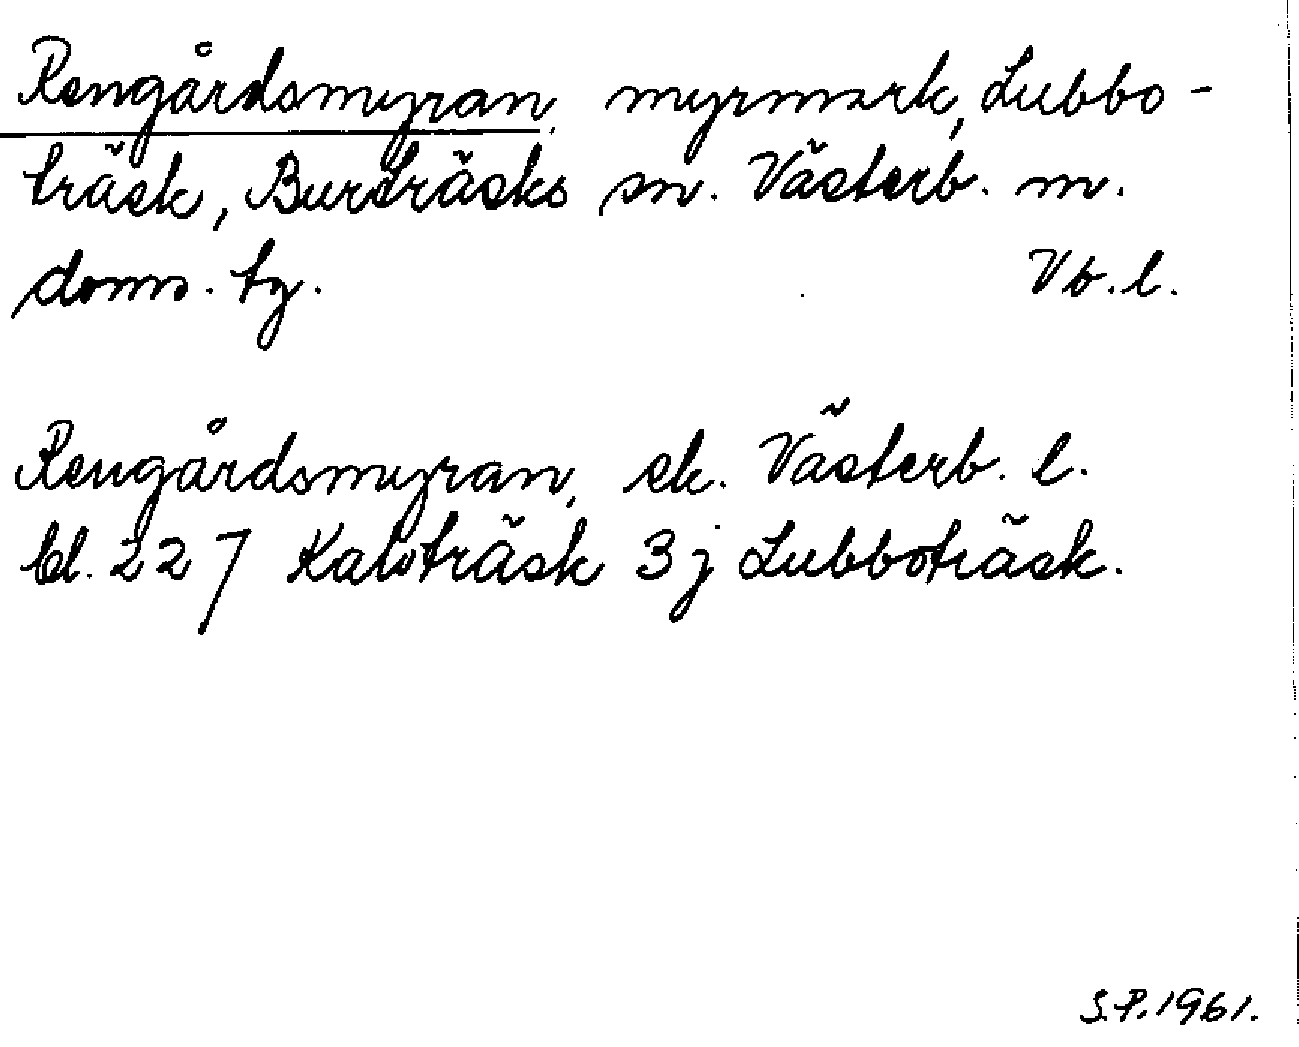 Rengårdsmyran, myrmark, Lubbo-
träsk, Burträsks sn. Västerb. m.
doms. tg.
Vb. l.
Rengårdsmyran, ek. Västerb. l.
bl. 227 Kalvträsk 3j Lubboträsk.
S.P. 1961.